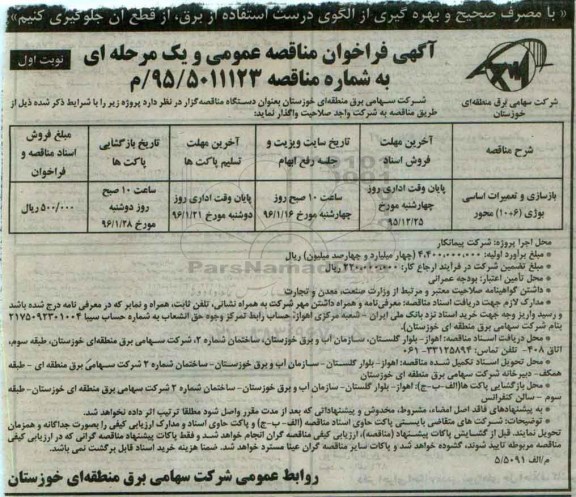 « با مصرف صحیح و بهره گیری از الگوی درست استفاده از برق، از قطع آن جلوگیری کنیم»
نوبت اول
آگهی فراخوان مناقصه عمومی و یک مرحله ای
به شماره مناقصه ۹۵/۵۰۱۱۱۲۳/م
شرکت سهامی برق منطقه‌ای
خوزستان
شرکت سهامی برق منطقه‌ای خوزستان بعنوان دستگاه مناقصه‌گزار در نظر دارد پروژه زیر را با شرایط ذکر شده ذیل از
طریق مناقصه به شرکت واجد صلاحیت واگذار نماید:
شرح مناقصه
آخرین مهلت فروش اسناد
تاریخ سایت ویزیت و جلسه رفع ابهام
آخرین مهلت تسلیم پاکت ها
تاریخ بازگشایی پاکت ها
مبلغ فروش اسناد مناقصه و فراخوان
بازسازی و تعمیرات اساسی بوژی (۱۰۰۶) محور
پایان وقت اداری روز چهارشنبه مورخ ۹۵/۱۲/۲۵
ساعت ۱۰ صبح روز چهارشنبه مورخ ۹۶/۱/۱۶
پایان وقت اداری روز دوشنبه مورخ ۹۶/۱/۲۱
ساعت ۱۰ صبح روز دوشنبه مورخ ۹۶/۱/۲۸
۵۰۰/۰۰۰ ریال
محل اجرا پروژه: شرکت پیمانکار
• مبلغ برآورد اولیه: ۴,۴۰۰,۰۰۰,۰۰۰ (چهار میلیارد و چهارصد میلیون) ریال
• مبلغ تضمین شرکت در فرآیند ارجاع کار: ۲۲۰,۰۰۰,۰۰۰ ریال
• محل تأمین اعتبار: بودجه عمرانی
• داشتن گواهینامه صلاحیت معتبر و مرتبط از وزارت صنعت، معدن و تجارت
• مدارک لازم جهت دریافت اسناد مناقصه: معرفی‌نامه و همراه داشتن مهر شرکت به همراه نشانی، تلفن ثابت، همراه و نمابر که در معرفی نامه درج شده باشد
و رسید واریز وجه جهت خرید اسناد نزد بانک ملی ایران - شعبه مرکزی اهواز، حساب رابط تمرکز وجوه حق انشعاب به شماره حساب سیبا ۲۱۷۵۰۹۲۳۰۱۰۰۴
بنام شرکت سهامی برق منطقه ای خوزستان).
• محل دریافت اسناد مناقصه: اهواز- بلوار گلستان، سازمان آب و برق خوزستان، ساختمان شماره ۲، شرکت سهامی برق منطقه‌ای خوزستان، طبقه سوم،
اتاق ۴۰۸- تلفن تماس: ۳۳۱۲۵۸۹۴-۰۶۱
• محل تحویل اسناد تکمیل شده مناقصه: اهواز- بلوار گلستان- سازمان آب و برق خوزستان- ساختمان شماره ۲ شرکت سهامی برق منطقه ای - طبقه
همکف- دبیرخانه شرکت سهامی برق منطقه ای خوزستان
• محل بازگشایی پاکت ها(الف-ب-ج): اهواز- بلوار گلستان- سازمان آب و برق خوزستان- ساختمان شماره ۲ شرکت سهامی برق منطقه ای خوزستان- طبقه
سوم - سالن کنفرانس
• به پیشنهادهای فاقد امضاء، مشروط، مخدوش و پیشنهاداتی که بعد از مدت مقرر واصل شود مطلقا ترتیب اثر داده نخواهد شد.
• توضیحات: شرکت های متقاضی بایستی پاکت حاوی اسناد مناقصه (الف-ب-ج) و پاکت حاوی اسناد و مدارک ارزیابی کیفی را بصورت جداگانه و همزمان
تحویل نمایند. قبل از گشایش پاکات پیشنهاد (مناقصه)، ارزیابی کیفی مناقصه گران انجام خواهد شد و فقط پاکات پیشنهاد مناقصه گرانی که در ارزیابی کیفی
مناقصه مربوطه تایید شوند، گشوده خواهد شد و پاکات سایر مناقصه گران عینا مسترد خواهد شد. ضمنا هزینه خرید اسناد قابل برگشت نمی باشد.
م/الف ۵/۵۰۹۱
روابط عمومی شرکت سهامی برق منطقه‌ای خوزستان